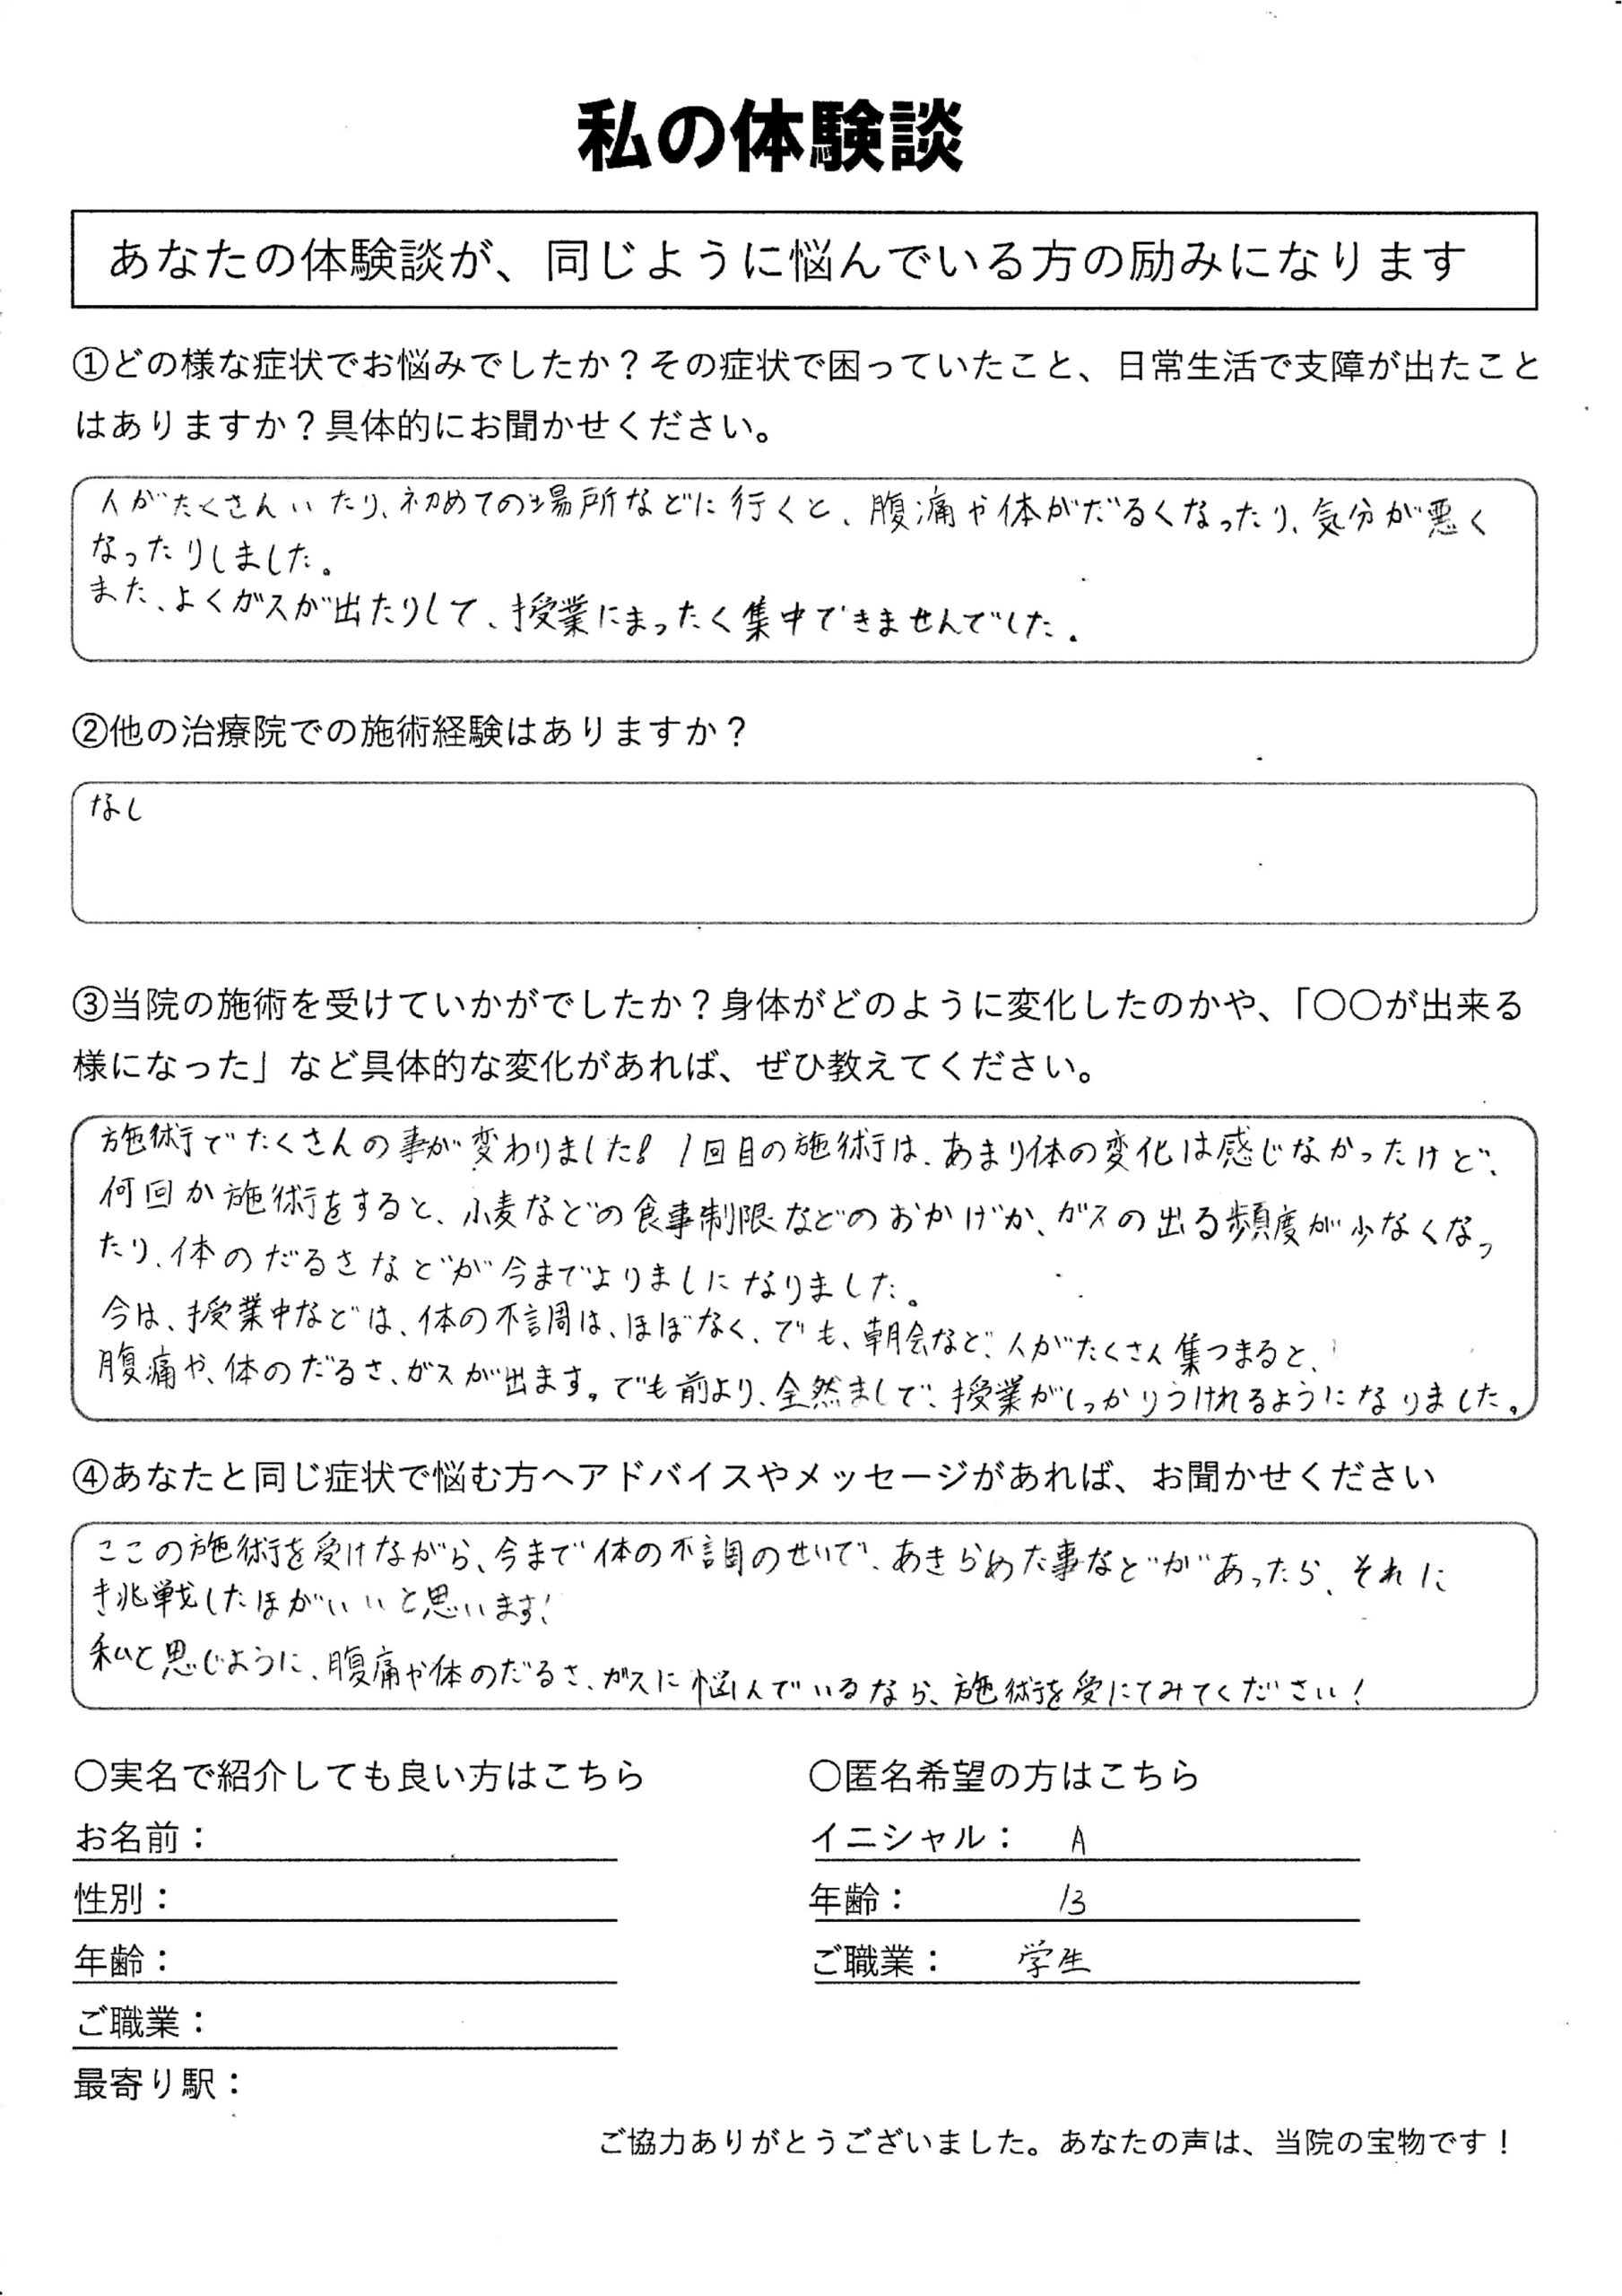 私の体験談
あなたの体験談が、同じように悩んでいる方の励みになります
①どの様な症状でお悩みでしたか？その症状で困っていたこと、日常生活で支障が出たこと
はありますか？具体的にお聞かせください。
人がたくさんいたり、初めての場所などに行くと、腹痛や体がだるくなったり、気分が悪く
なったりしました。
また、よくガスが出たりして、授業にまったく集中できませんでした。
②他の治療院での施術経験はありますか？
なし
③当院の施術を受けていかがでしたか？身体がどのように変化したのかや、「〇〇が出来る
様になった」など具体的な変化があれば、ぜひ教えてください。
施術でたくさんの事が変わりました！1回目の施術は、あまり体の変化は感じなかったけど、
何回か施術をすると、小麦などの食事制限などのおかげか、ガスの出る頻度が少なくなっ
たり、体のだるさなどが今までよりましになりました。
今は、授業中などは、体の不調は、ほぼなく、でも、朝会など、人がたくさん集つまると、
腹痛や、体のだるさ、ガスが出ます。でも前より、全然ましで、授業がしっかりうけれるようになりました。
④あなたと同じ症状で悩む方へアドバイスやメッセージがあれば、お聞かせください
ここの施術を受けながら、今まで体の不調のせいで、あきらめた事などがあったら、それに
挑戦したほがいいと思います！
私と思じように、腹痛や体のだるさ、ガスに悩んでいるなら、施術を受にてみてください！
〇実名で紹介しても良い方はこちら
〇匿名希望の方はこちら
お名前：
イニシャル： A
性別：
年齢： 13
年齢：
ご職業： 学生
ご職業：
最寄り駅：
ご協力ありがとうございました。あなたの声は、当院の宝物です！